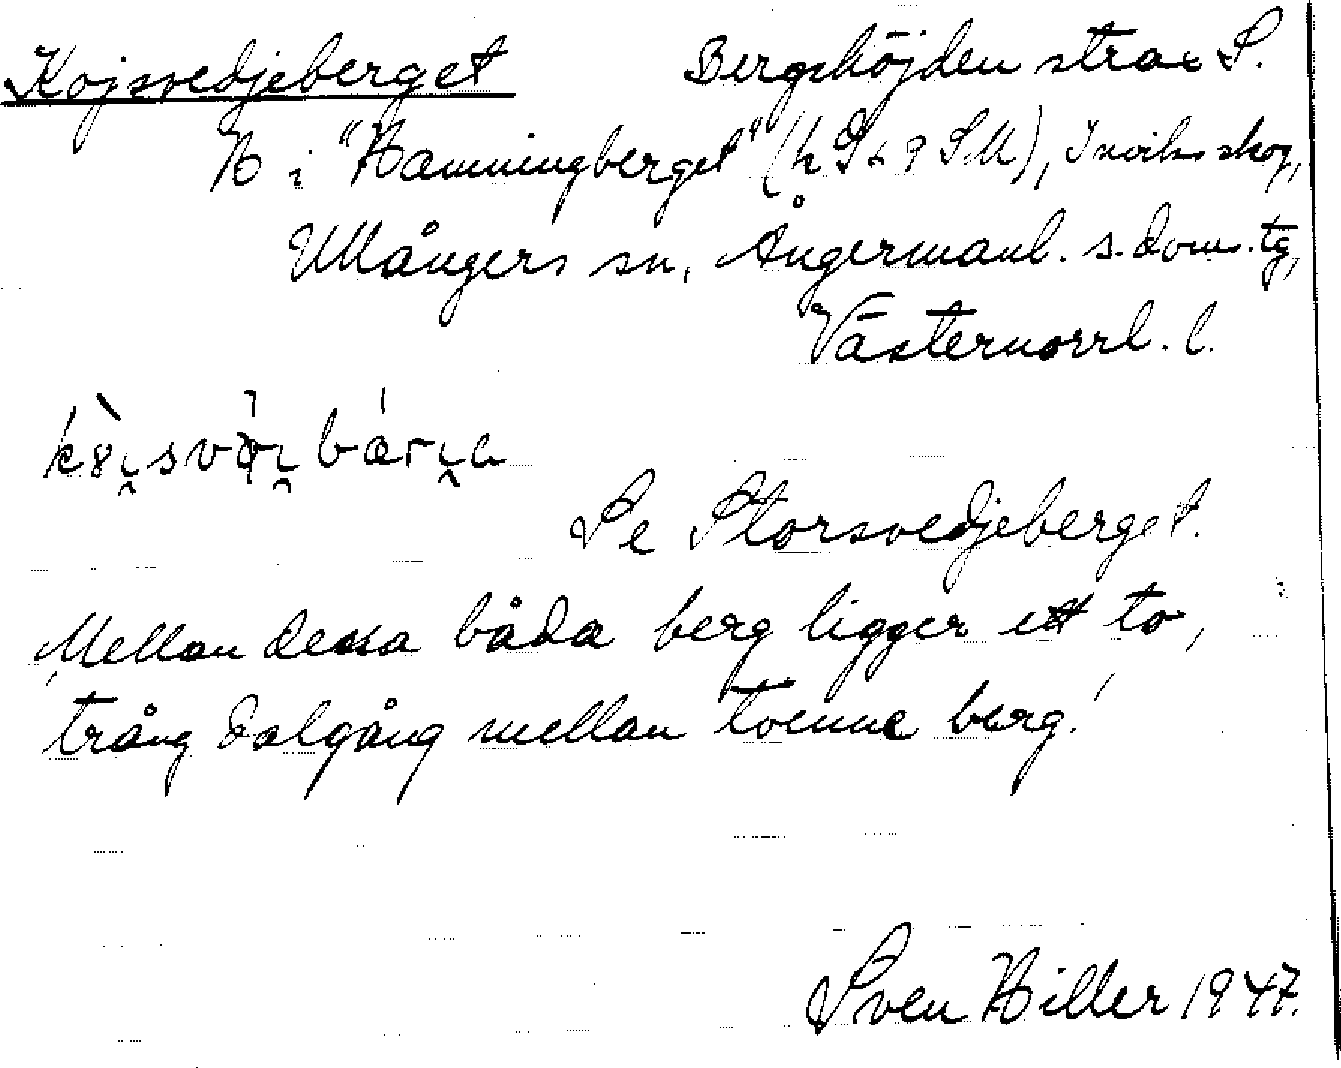 Kojsvedjeberget Bergshöjden strax S.
H i "Hamningberget" (h S & 9 SM), Inviks skog,
Ullångers sn, Ångermanl. s. dom. tg,
Västernorrl. l.
Se Storsvedjeberget.
Mellan dessa båda berg ligger ett to,
trång dalgång mellan tvenne berg!
Sven Hiller 1947.